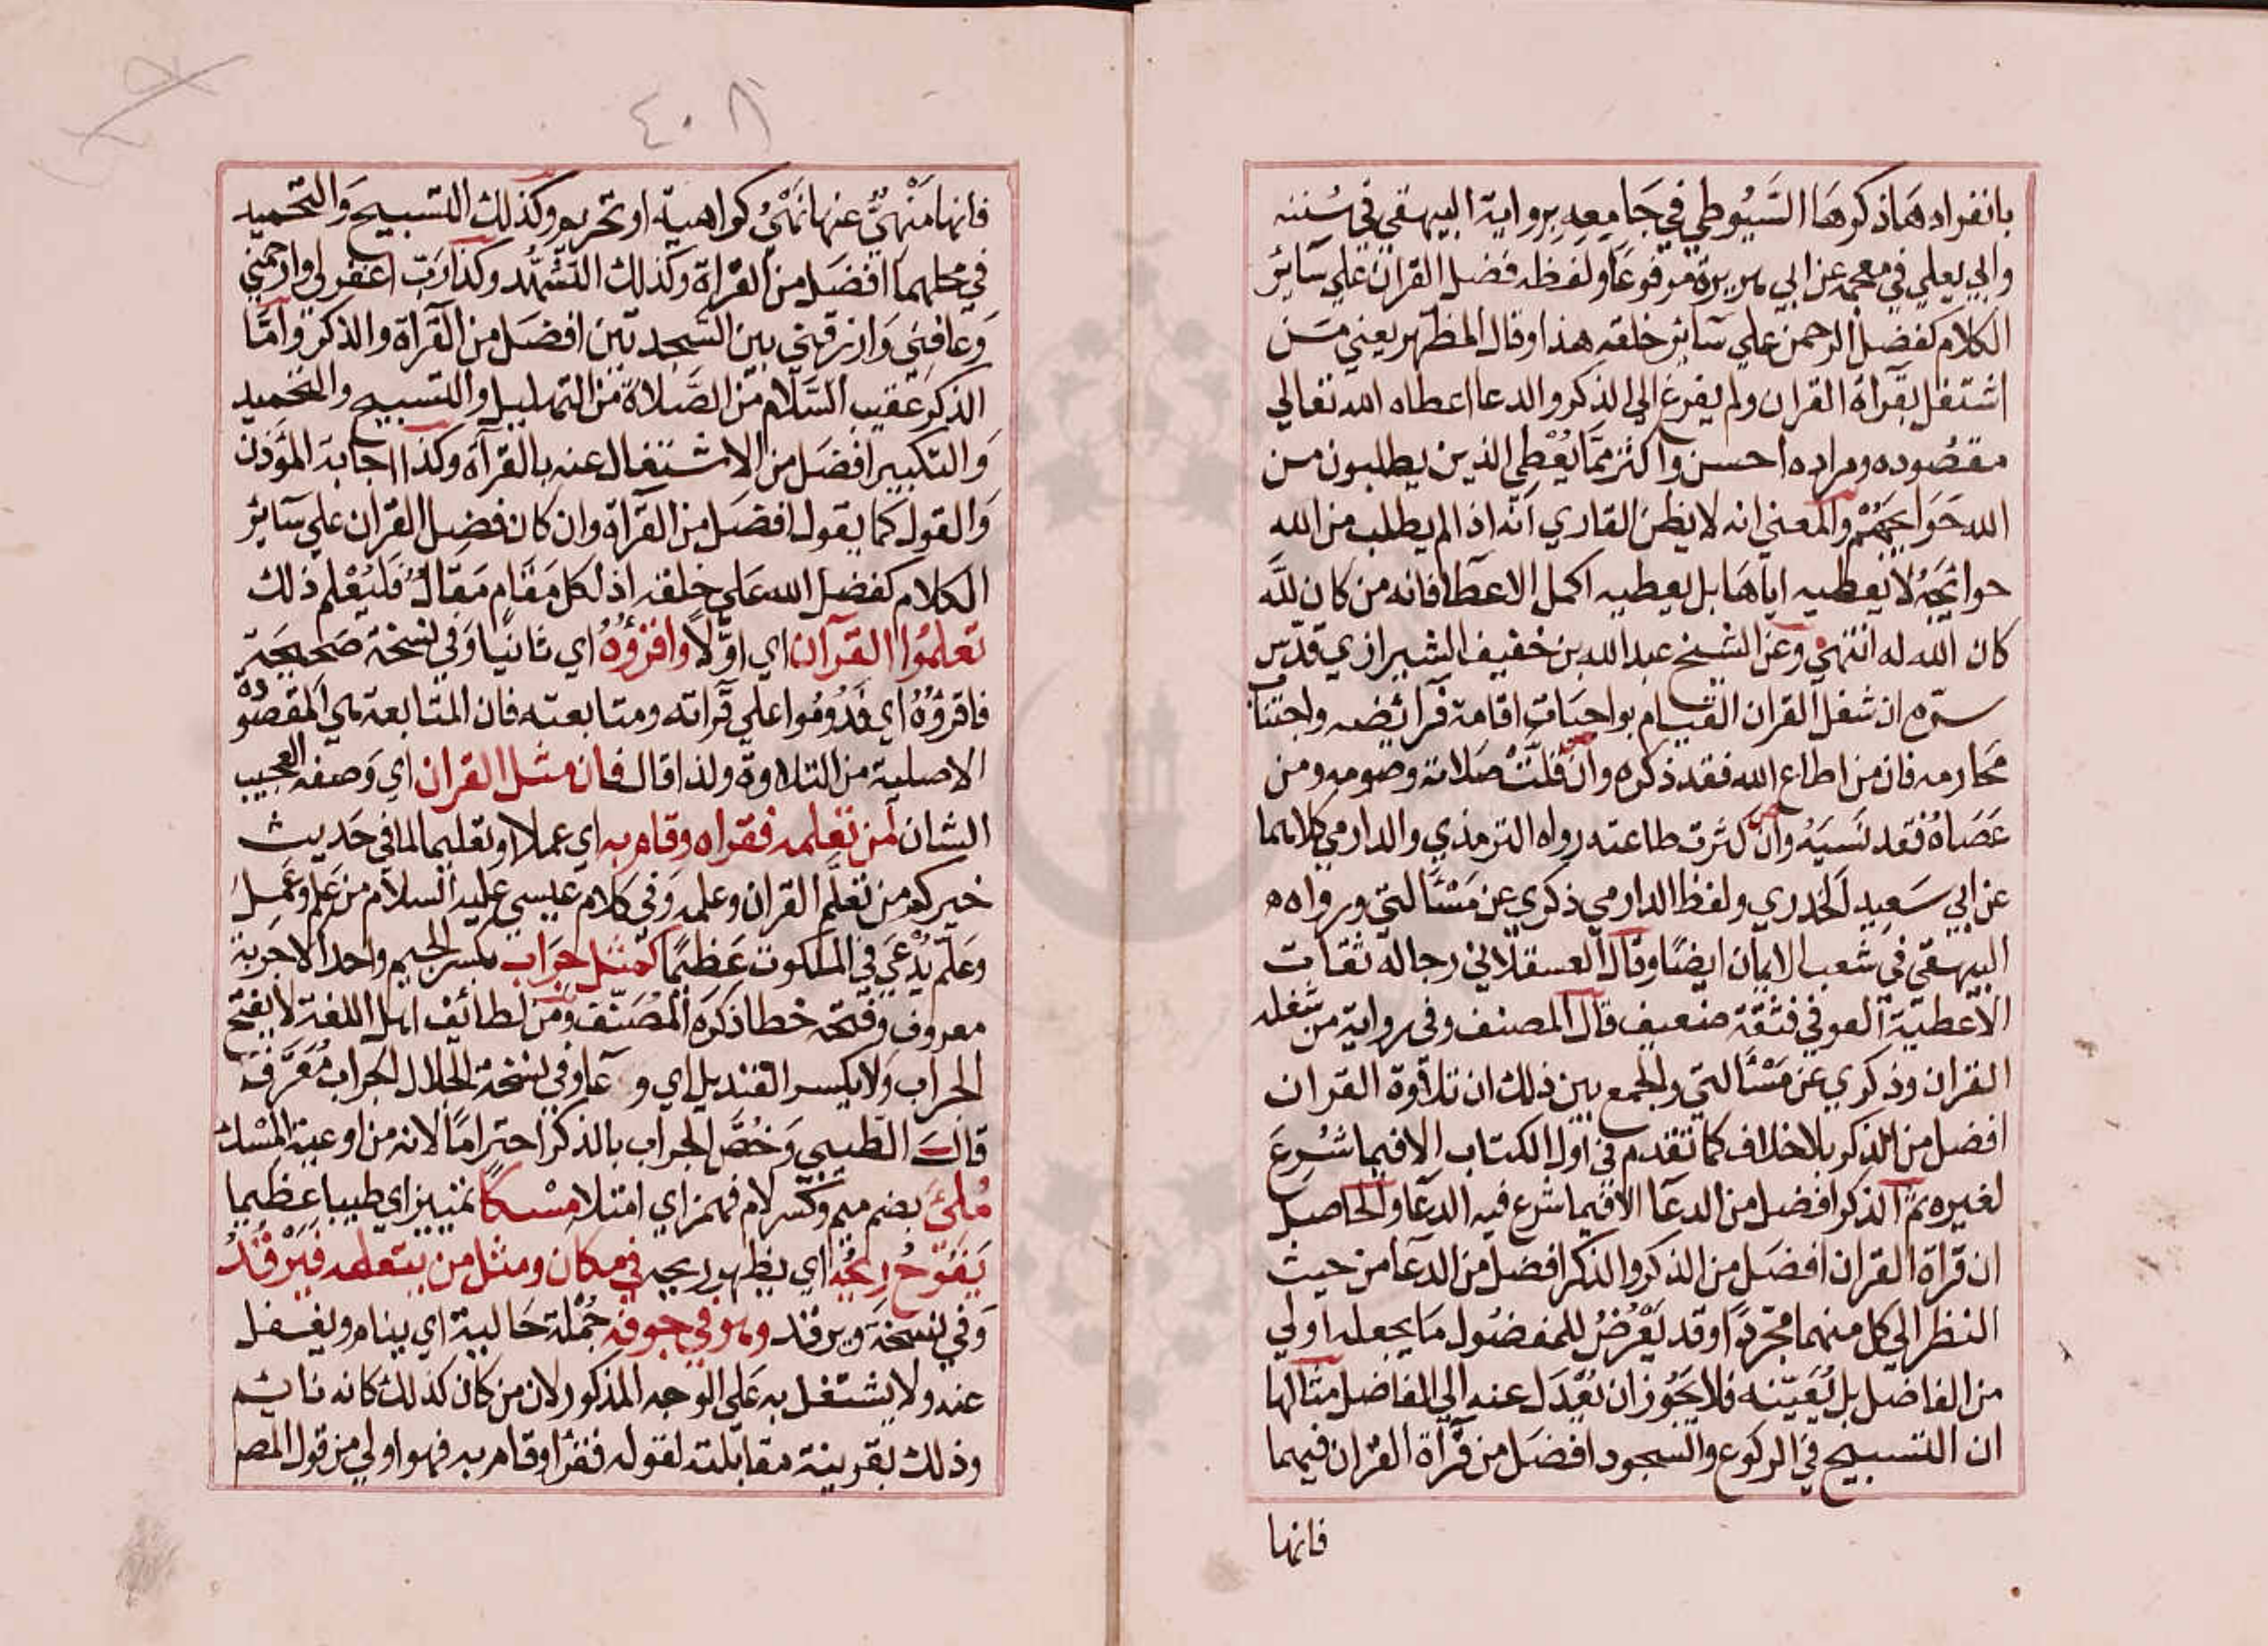 بانفراده هما ذكرها السَّيُوطي في جَامِعِه بِرواية البيهقي في سُننه
وابي يعلي في معجمه عن ابي هريرة مرفوعًا ولفظه فضل القران علي سَايرُ
الكلام كفضل الرحمن علي سَاير خلقه هذا وقال المظهر يعني مَن
اشتغل بقرآة القران ولم يفرغ الي الذكر والدعا اعطاه الله تعالي
مقصُوده ومراده احسن واكثر مِمَّا يُعْطِي الذين يطلبون من
الله حَوَايجهُمْ والمعني انه لا يظن القاري انّه اذا لم يطلب من الله
حوائجَهُ لا يعطيه اياها بل يعطيه اكمل الاعطا فانه من كان للّه
كان الله له انتهي وعن الشيخ عبدالله بن خفيف الشيرازي قدّس
سرّه ان شغل القران القيام بواجبات اقامة فرآئضه واجتناب
محارمه فان من اطاع الله فقد ذكره وان قلّتْ صَلاته وصومه ومن
عَصَاهُ فقد نَسيَهُ وان كثرت طاعته رواه الترمذي والدارمي كلاهما
عن ابي سَعِيد الخدري ولفظ الدارمي ذكري عن مَسْئَالتي ورواه ه
البيهقي في شعب الايمان ايضًا وقال العسقلاني رجاله ثقات
الا عطيّة العوفي فثقة ضعيف قال المصنف وفي رواية من شغله
القران وذكري عن مَسْئَالتي والجمع بين ذلك ان تلاوة القران
افضل من الذكر بلا خلاف كما تقدم في اول الكتاب الا فيما شُرِعَ
لغيره ثم الذكر افضل من الدعآ الا فيما شرع فيه الدعَا والحاصِل
ان قراة القران افضَل من الذكر والذكر افضل من الدعآ من حيث
النظر الي كل منهما مجرّدًا وقد يَعْرُضُ للمفضُول مَا يجعله اولي
من الفاضل بل يُعَيّنه فلا يَجُوز ان يُعْدَل عنه الي الفاضل مثالها
ان التسبيح في الركوع والسجود افضَل من قرآة القران فيهما
فانها
٤٠٨
فانها مَنْهيٌّ عنها نَهْيُ كراهية او تحريم وكذلك التسبيح وَالتحميد
في محلهما افضَل من القرْاة وكذلك التشهُّد وكذا رَبّ اغفر لي وارحمني
وَعافِني وَارزقني بين السَجدتين افضَل من القرآة والذكر وامّا
الذكر عَقيب السَّلام من الصَّلاة من التهليل والتسبيح والتحميد
وَالتكبير افضَل من الاشتغال عنه بالقرآة وكذا اجابة المؤذن
وَالقول كما يقول افضَل من القرآة وان كان فضل القران علي سَاير
الكلام كفضل الله عَلي خلقه اذ لكل مَقَامٍ مَقالٌ فَليُعْلم ذلك
تعلموُا القرآن اي اوّلًا وافزؤُهُ اي ثانيًا وَفي نسخة صَحيحَة
فاقرؤُهُ اي فَدُومُوا علي قرآته ومتابعته فان المتابعة هي المقصودة
الاصلية من التلاوة ولذا قال فان مثل القران اي وَصفه العجيب
الشان لمن تعلمه فقراه وقام به اي عملا وتعليما لما في حَديث
خيركم من تعلّم القران وعلمه وَفي كلام عيسي عليه السلام من علم وعَمِلَ
وعَلّم يُدْعَي في الملكوت عَظِيمًا كمثل جِرَاب بكسر الجيم واحد الاجربة
معروف وَفتحه خطا ذكره المُصَنّف وَمن لطائف اهل اللغة لا يفتح
الجراب وَلا يكسر القنديل اي وِعآ وفي نسخة الجلال الجراب مُعَرَّف
قال الطيبي وَخُصَّ الجراب بالذكر احترامًا لانه من اوعية المسْك
مُلِئَ بضم ميم وكسر لام فهمز اي امتلا مسْكًا تمييز اي طيبا عظيما
يَفوُحُ ريحُه اي يظهر ريحه في مكان ومثل من يتعلمه فيَرْقدُ
وَفي نسخة ويرقد وهو في جوفه جُمْلة حَالية اي ينام ويغفل
عنه ولا يشتغل به عَلي الوجه المذكور لان من كان كذلك كانه نائم
وذلك بقرينة مقابلته لقوله فقرا وقام به فهو اولي من قول المص